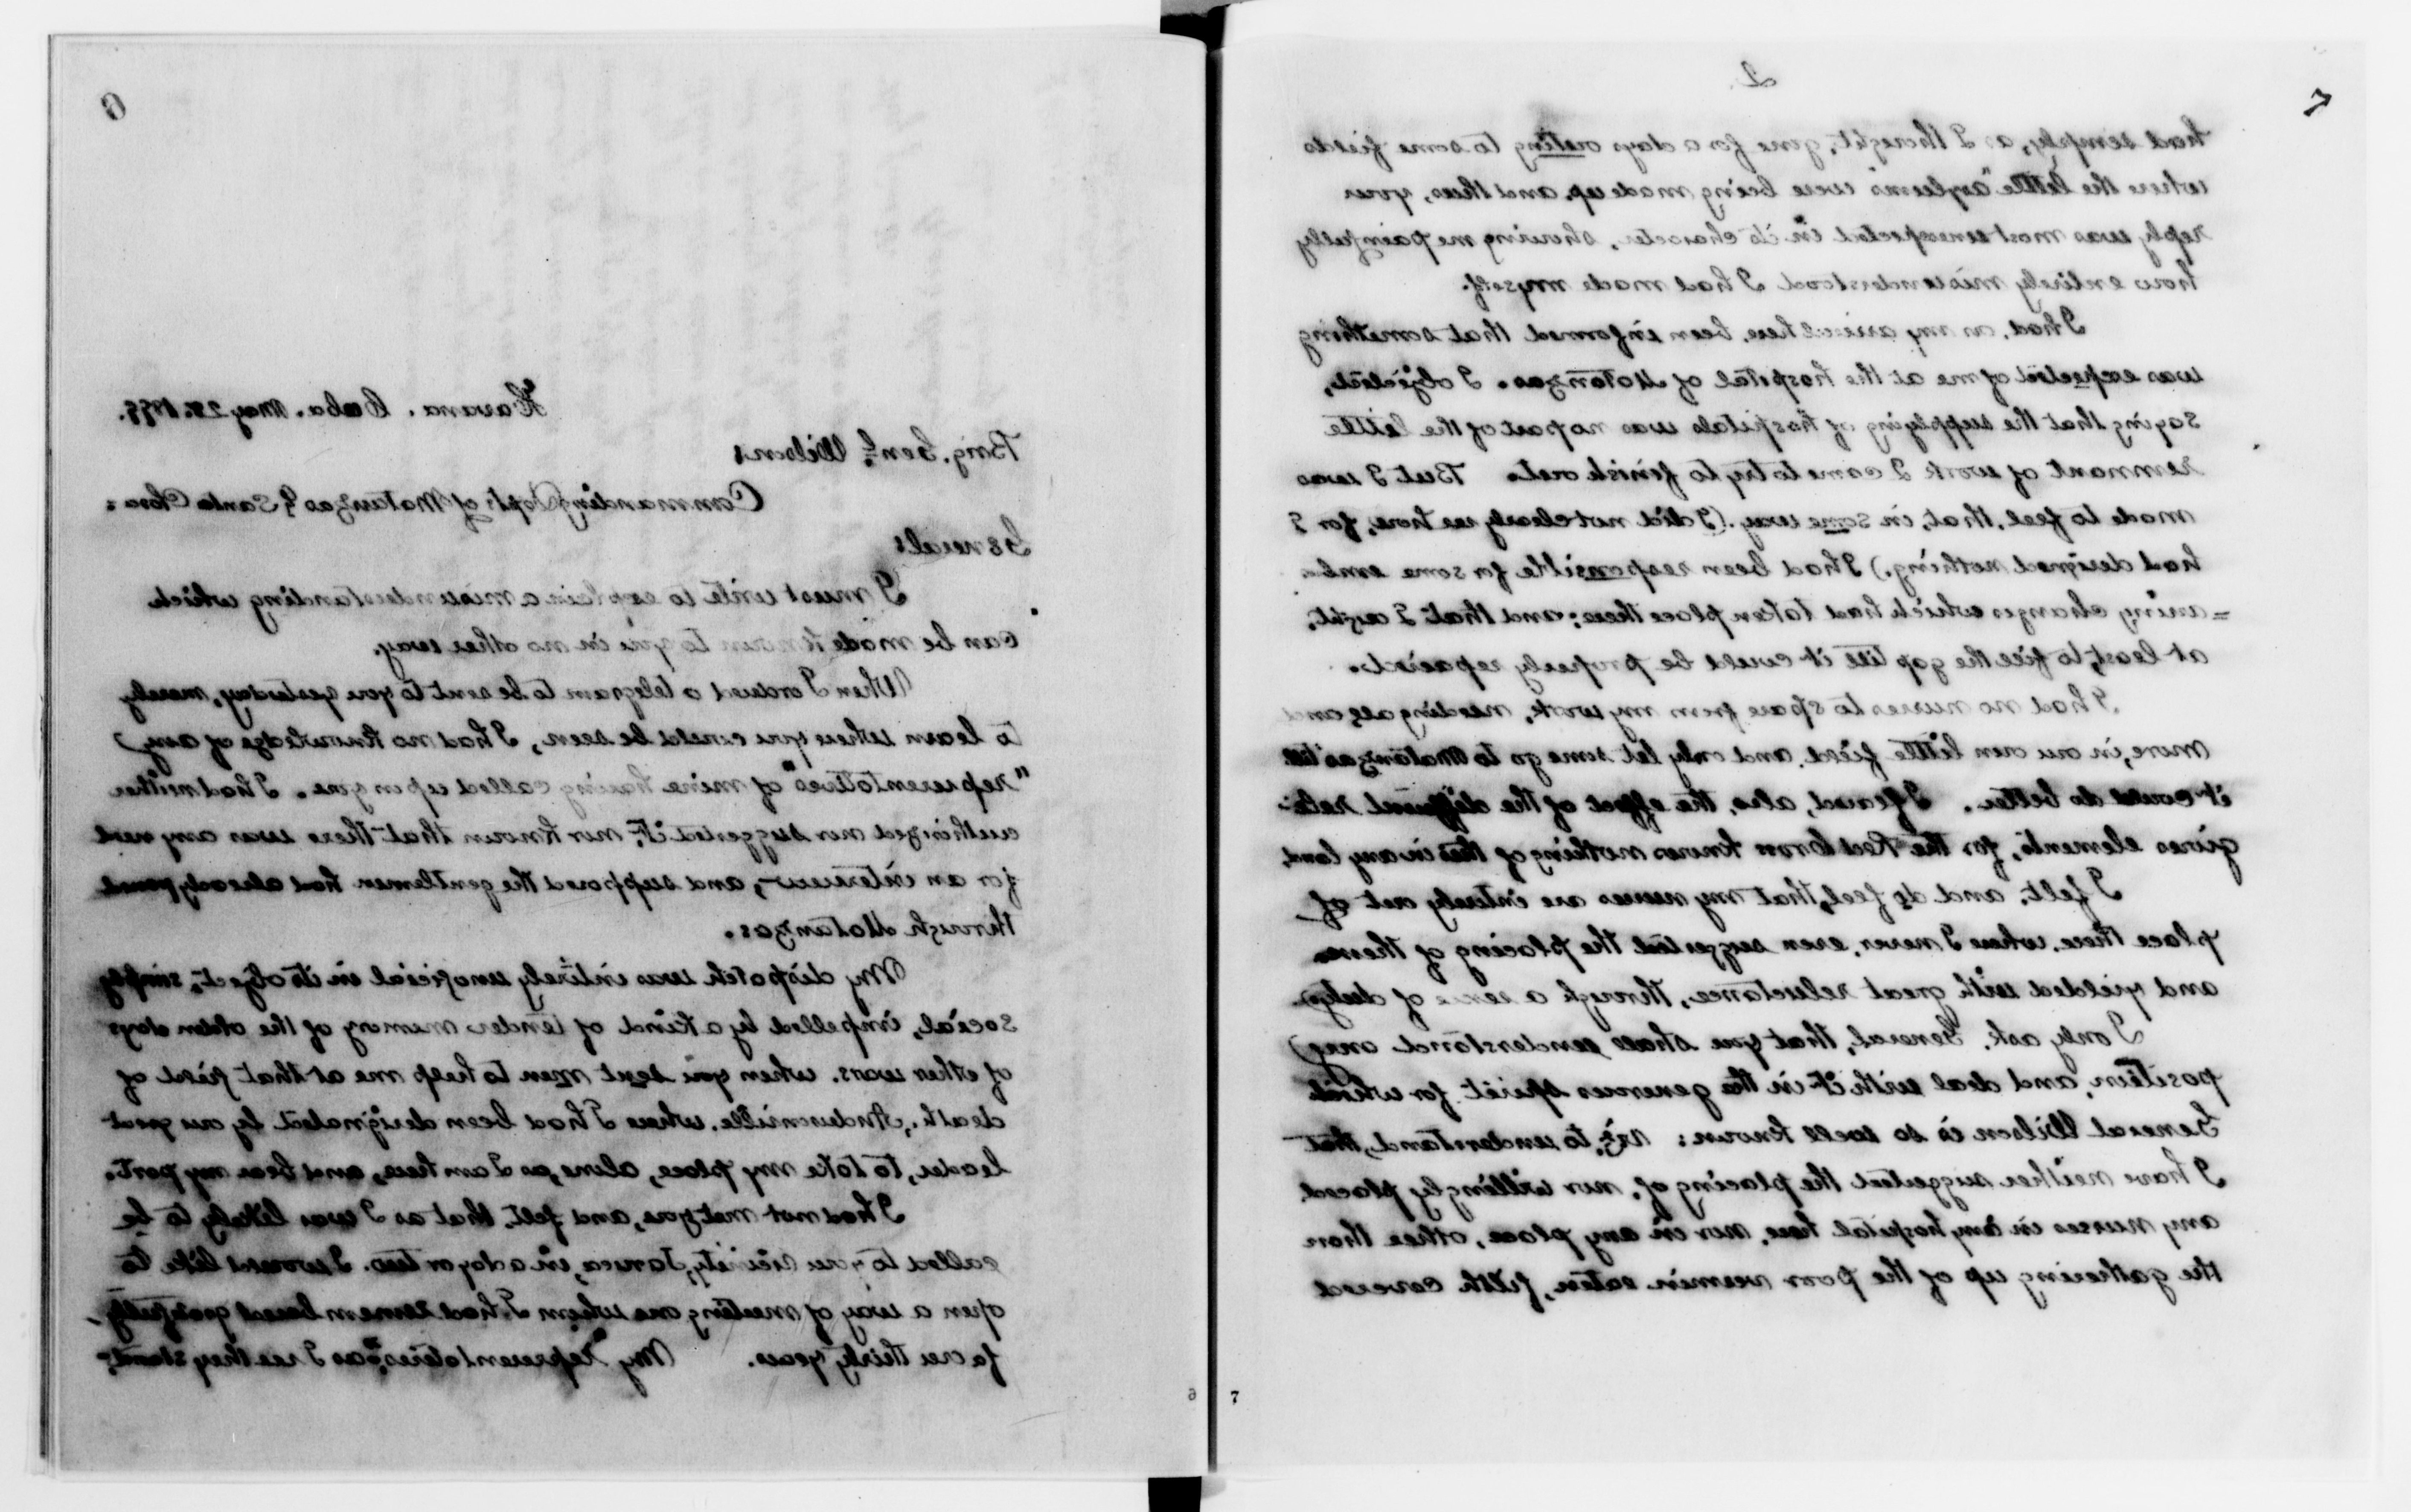 6
Havana. Cuba. May 25. 1899.
Brig. Genl. Wilson,
Commanding Dept. of Matanzas & Santa Clara:
General:
I must write to explain a misunderstanding which
can be made known to you in no other way.
When I ordered a telegram to be sent to you yesterday, merely
to learn where you could be seen, I had no knowledge of any
"representatives" of mine having called upon you. I had neither
authorized nor suggested it, nor known that there was any need
for an interview, and supposed the gentlemen had already passed
through Matanzas.
My dispatch was entirely unoficial in its object, simply
social, impelled by a kind of tender memory of the olden days
of other wars. when you sent men to help me at that field of
death, Andersonville. where I had been designated by our great
leader, to take my place, alone, as I am here, and bear my part.
I had not met you, and felt that as I was likely to be
called to your vicinity, Jaruco, in a day or two. I would like to
open a way of meeting one whom I had remembered gratefully
for over thirty years. My "Representatives" as I see they stand,
6
2
7
had simply, as I thought, gone for a days outing to some fields
where the little "asylums" were being made up, and thus, your
reply was most unexpected in its character, showing me painfully
how entirely misunderstood I had made myself.
I had, on my arrival here, been informed that something
was expected of me at the hospital of Matanzas. I objected,
saying that the supplying of hospitals was no part of the little
remnant of work I came to try to finish out. But I was
made to feel, that, in some way. (I did not clearly see how, for I
had designed nothing.) I had been responsible for some emb-
=arring changes which had taken place there; and that I ought,
at least, to fill the gap till it could be properly repaired.
I had no nurses to spare from my work, needing all and
more, in our own little field. and only let some go to Matanzas till
it could do better. I feared, also, the effect of the different reli-
gious elements, for, the Red Cross knows nothing of this in any land.
I felt, and do feel, that my nurses are entirely out of
place there, where I never, even suggested the placing of them
and yielded with great reluctance, through a sense of duty.
I only ask, General, that you shall understand my
position, and deal with it in the generous spirit for which
General Wilson is so well known: viz. to understand, that
I have neither suggested the placing of, nor willingly placed
any nurses in any hospital here, nor in any place, other than
the gathering up of the poor vermin eaten, filth covered
7